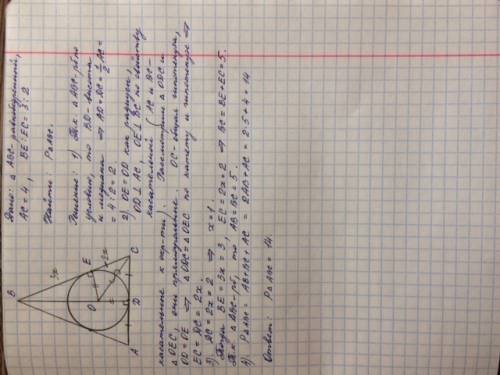 Дано: △ ABC - равнобедренный,
AC = 4, BE:EC = 3:2
Найти: P△ABC.
Решение: 1) Т.к △ ABC - р/б по
условию, то BD - высота
и медиана ⇒ AD = DC = 1/2 AC =
= 4:2 = 2.
2) OE = OD как радиусы,
OD ⊥ AC, OE ⊥ BC по свойству
касательной (AC и BC -
касательные к окр-ти). Рассмотрим △ ODC и
△ OEC, они прямоугольные. OC - общая гипотенуза,
OD = OE ⇒ △ ODC = △ OEC по катету и гипотенузе ⇒
EC = DC = 2x.
3) DC = 2x = 2 ⇒ x = 1.
Тогда BE = 3x = 3, EC = 2x = 2 ⇒ BC = BE + EC = 5.
Т.к △ ABC - р/б, то AB = BC = 5.
4) P△ABC = AB + BC + AC = 2AB + AC = 2·5 + 4 = 14
Ответ: P△ABC = 14.
B
3x
E
2x
O
A
D
C